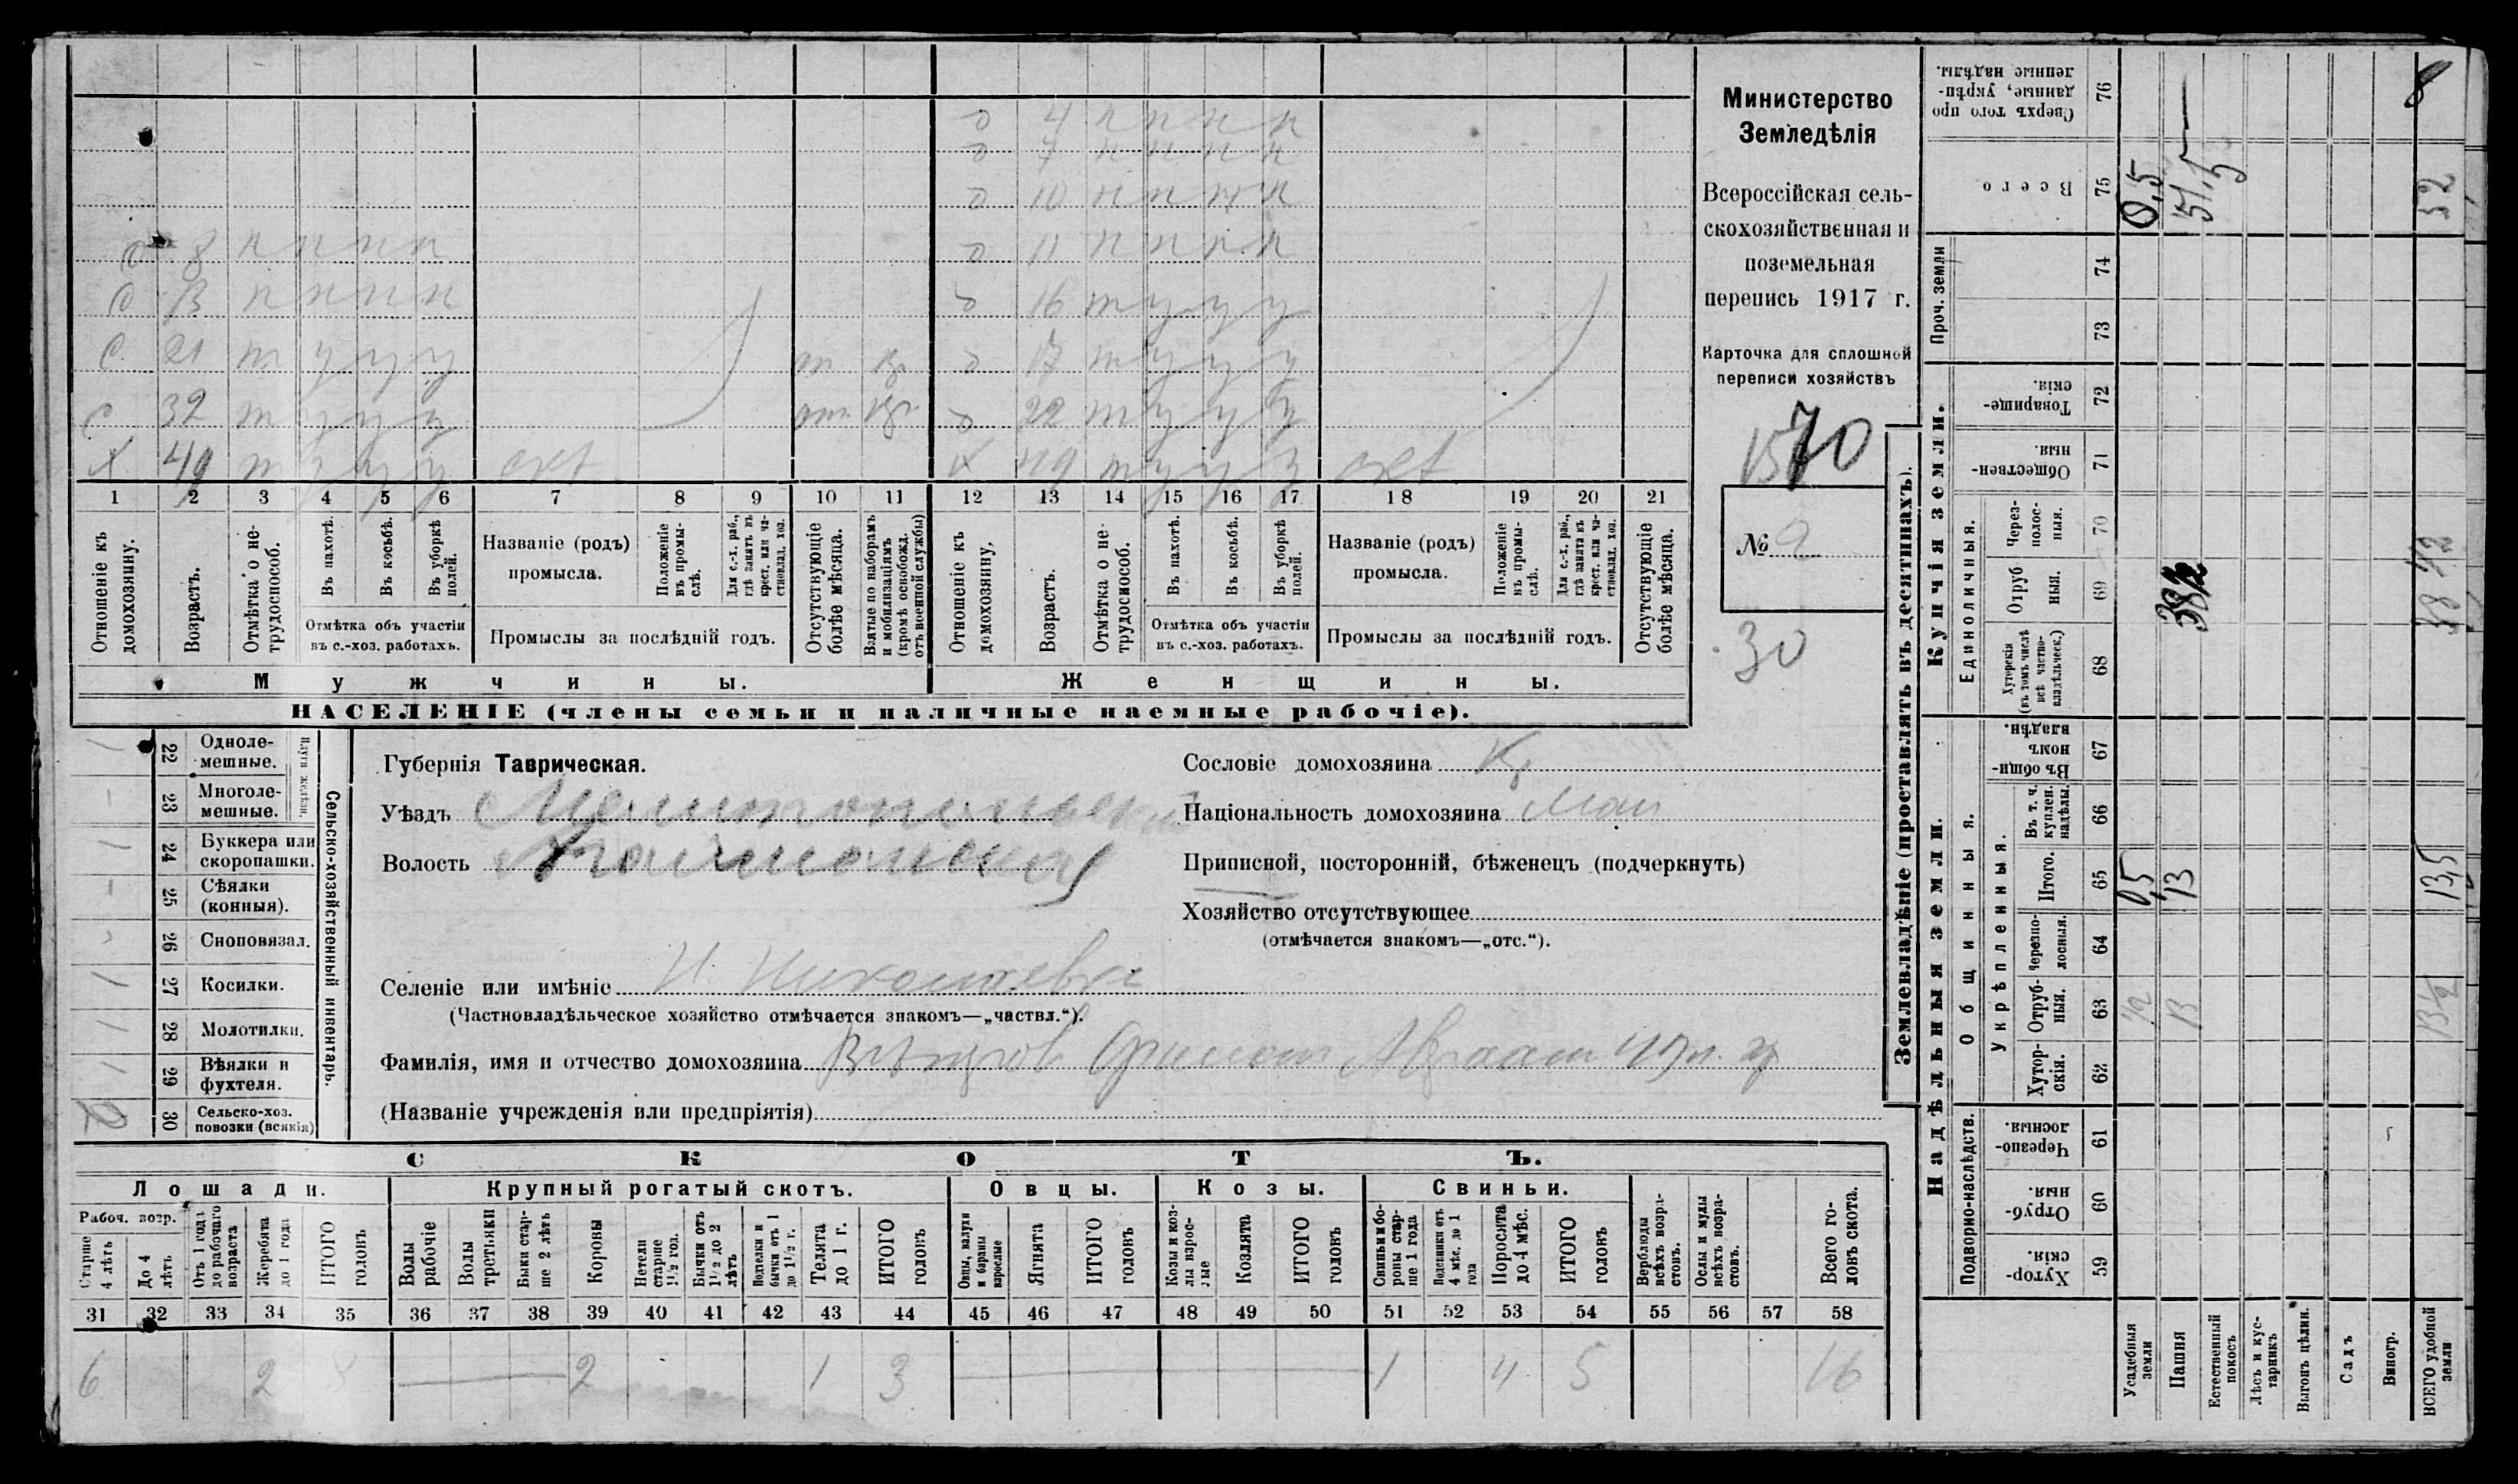 о 4 н н н н
о 7 н н н н
о 10 н н н н
с 8 н н н н о 11 н н н н
с 13 н н н н о 16 т у у у
с 21 т у у у от вр о 17 т у у у
с 32 т у у у от вр о 22 т у у у
х 49 т у у у окт х 49 т у у у окт
1 2 3 4 5 6 7 8 9 10 11 12 13 14 15 16 17 18 19 20 21
Отношеніе къ домохозяину.
Возрастъ.
Отмѣтка о нетрудоспособ.
Въ пахотѣ.
Въ косьбѣ.
Въ уборкѣ полей.
Отмѣтка объ участіи въ с.-хоз. работахъ.
Названіе (родъ) промысла.
Положеніе въ промыслѣ.
Для с.-х. раб., гдѣ занятъ въ крест. или частновлад. хоз.
Промыслы за послѣдній годъ.
Отсутствующіе болѣе мѣсяца.
Взятые по наборамъ и мобилизаціямъ (кромѣ освобожд. отъ военной службы)
Отношеніе къ домохозяину.
Возрастъ.
Отмѣтка о нетрудоспособ.
Въ пахотѣ.
Въ косьбѣ.
Въ уборкѣ полей.
Отмѣтка объ участіи въ с.-хоз. работахъ.
Названіе (родъ) промысла.
Положеніе въ промыслѣ.
Для с.-х. раб., гдѣ занята въ крест. или частновлад. хоз.
Промыслы за послѣдній годъ.
Отсутствующіе болѣе мѣсяца.
Мужчины. Женщины.
НАСЕЛЕНІЕ (члены семьи и наличные наемные рабочіе).
Министерство
Земледѣлія
Всероссійская сель-
скохозяйственная и
поземельная
перепись 1917 г.
Карточка для сплошной
переписи хозяйствъ
1570
№ 2
30
Сельско-хозяйственный инвентарь.
Плуги желѣзн.
22 Одноле-
мешные.
23 Многоле-
мешные.
24 Буккера или
скоропашки.
25 Сѣялки
(конныя).
26 Сноповязал.
27 Косилки.
28 Молотилки.
29 Вѣялки и
фухтеля.
30 Сельско-хоз.
повозки (всякія)
1 - 1 - - 1 1 1 2
Губернія Таврическая.
Уѣздъ Мелитопольскій
Волость
Селеніе или имѣніе Н. Николаевка
(Частновладѣльческое хозяйство отмѣчается знакомъ—„частвл.“).
Фамилія, имя и отчество домохозяина
(Названіе учрежденія или предпріятія)
Сословіе домохозяина Кр
Національность домохозяина Мал
Приписной, посторонній, бѣженецъ (подчеркнуть)
Хозяйство отсутствующее
(отмѣчается знакомъ—„отс.“).
СКОТЪ.
Лошади. Крупный рогатый скотъ. Овцы. Козы. Свиньи.
Рабоч. возр.
Старше 4 лѣтъ
До 4 лѣтъ
Отъ 1 года до рабочаго возраста
Жеребята до 1 года
ИТОГО головъ
Волы рабочіе
Волы третьяки
Быки старше 2 лѣтъ
Коровы
Нетели старше 1½ год.
Бычки отъ 1½ до 2 лѣтъ
Подтелки и бычки отъ 1 до 1½ г.
Телята до 1 г.
ИТОГО головъ
Овцы, валухи и бараны взрослые
Ягнята
ИТОГО головъ
Козы и козлы взрослые
Козлята
ИТОГО головъ
Свиньи и боровы старше 1 года
Подсвинки отъ 4 мѣс. до 1 года
Поросята до 4 мѣс.
ИТОГО головъ
Верблюды всѣхъ возрастовъ.
Ослы и мулы всѣхъ возрастовъ.
Всего головъ скота.
31 32 33 34 35 36 37 38 39 40 41 42 43 44 45 46 47 48 49 50 51 52 53 54 55 56 57 58
6 2 8 2 1 3 1 4 5 16
Землевладѣніе (проставлять въ десятинахъ).
Купчія земли.
Надѣльныя земли.
Сверхъ того проданные, укрѣпленные надѣлы. 76
Всего 75
Проч. земли 74 73
Товарищескія. 72
Общественныя. 71
Единоличныя.
Черезполосныя. 70
Отрубныя. 69
Хуторскія (въ томъ числѣ всѣ частновладѣльческ.) 68
Общинныя.
Въ общинномъ владѣн. 67
Укрѣпленныя.
Въ т. ч. куплен. надѣлы. 66
Итого. 65
Черезполосныя. 64
Отрубныя. 63
Хуторскія. 62
Подворно-наслѣдств.
Черезполосныя. 61
Отрубныя. 60
Хуторскія. 59
Усадебныя земли
Пашня
Естественный покосъ
Лѣсъ и кустарникъ
Выгонъ цѣлин.
Садъ
Виногр.
ВСЕГО удобной земли
8
0,5 51,5 52
38½ 38 ½
0,5 13 13,5
½ 13 13½